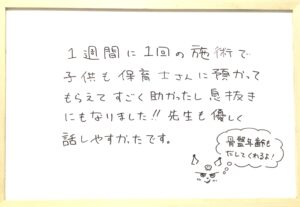 1週間に1回の施術で
子供も保育士さんに預かって
もらえてすごく助かったし息抜き
にもなりました!!先生も優しく
話しやすかったです。
骨盤年齢も
だしてくれるよ!